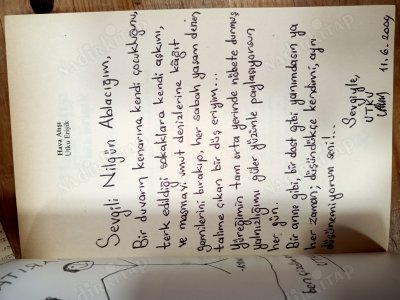 Hava Atışı
Utku Erişik
Sevgili Nilgün Ablacığım,
Bir duvarın kenarına kendi çocukluğunu,
terk edildiği sokaklara kendi aşkını,
ve masmavi umut denizlerine kâğıt
gemilerini bırakıp, her sabah yaşam denen
talime çıkan bir düş eriyim...
Yüreğimin tam orta yerinde nöbete durmuş
yalnızlığımı güler yüzünle paylaşıyorsun
her gün.
Bir anne gibi, bir dost gibi yanımdasın ya
her zaman; düşündükçe kendimi, ayrı
düşünemiyorum seni!...
Sevgiyle,
UTKU
11.6.2009